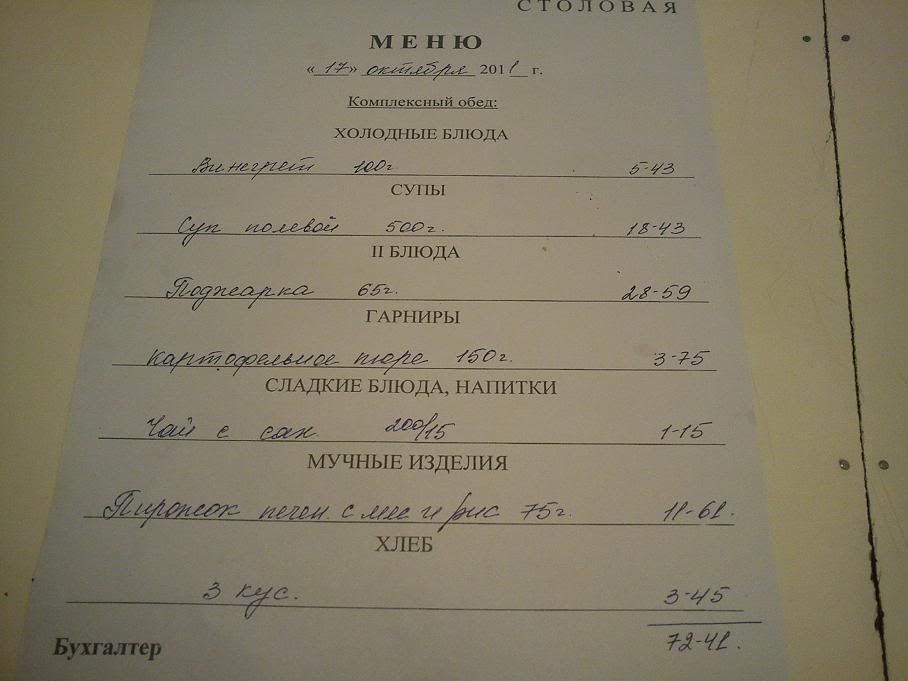 СТОЛОВАЯ
МЕНЮ
«17» октября 2011 г.
Комплексный обед:
ХОЛОДНЫЕ БЛЮДА
Винегрет 100г 5-43
СУПЫ
Суп полевой 500г. 18-43
II БЛЮДА
Поджарка 65г. 28-59
ГАРНИРЫ
картофельное пюре 150г. 3-75
СЛАДКИЕ БЛЮДА, НАПИТКИ
Чай с сах. 200/15 1-15
МУЧНЫЕ ИЗДЕЛИЯ
Пирожок печен. с мяс и рис 75г. 11-61.
ХЛЕБ
3 кус. 3-45
72-41.
Бухгалтер